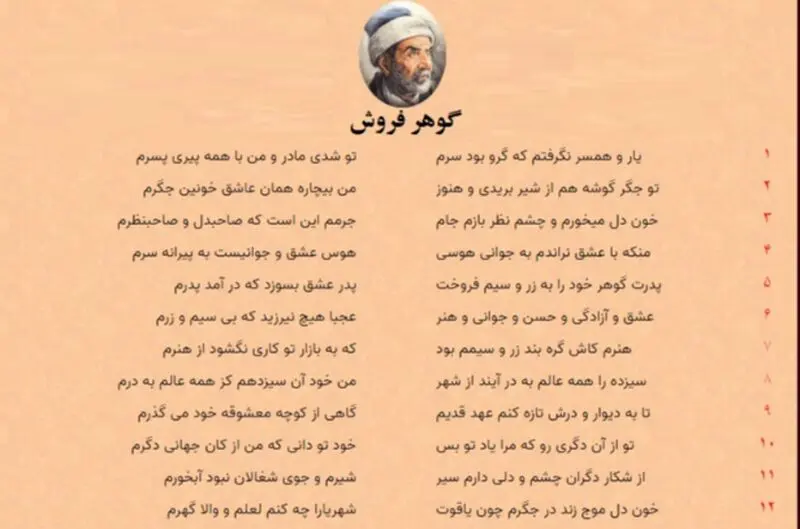 گوهر فروش
۱ یار و همسر نگرفتم که گرو بود سرم تو شدی مادر و من با همه پیری پسرم
۲ تو جگر گوشه هم از شیر بریدی و هنوز من بیچاره همان عاشق خونین جگرم
۳ خون دل میخورم و چشم نظر بازم جام جرمم این است که صاحبدل و صاحبنظرم
۴ منکه با عشق نراندم به جوانی هوسی هوس عشق و جوانیست به پیرانه سرم
۵ پدرت گوهر خود را به زر و سیم فروخت پدر عشق بسوزد که در آمد پدرم
۶ عشق و آزادگی و حسن و جوانی و هنر عجبا هیچ نیرزید که بی سیم و زرم
۷ هنرم کاش گره بند زر و سیمم بود که به بازار تو کاری نگشود از هنرم
۸ سیزده را همه عالم به در آیند از شهر من خود آن سیزدهم کز همه عالم به درم
۹ تا به دیوار و درش تازه کنم عهد قدیم گاهی از کوچه معشوقه خود می گذرم
۱۰ تو از آن دگری رو که مرا یاد تو بس خود تو دانی که من از کان جهانی دگرم
۱۱ از شکار دگران چشم و دلی دارم سیر شیرم و جوی شغالان نبود آبخورم
۱۲ خون دل موج زند در جگرم چون یاقوت شهریارا چه کنم لعلم و والا گهرم